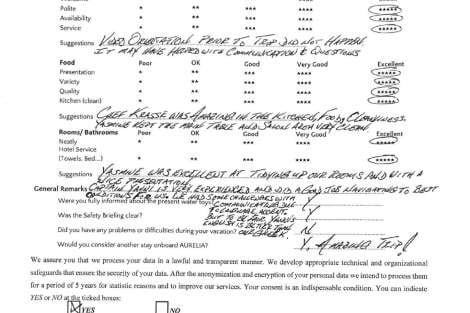 Polite * ** *** **** *****
Availability * ** *** **** *****
Service * ** *** **** *****
Suggestions VIDEO ORIENTATION PRIOR TO TRIP DID NOT HAPPEN
IT MAY HAVE HELPED WITH COMMUNICATION & QUESTIONS
Food Poor OK Good Very Good Excellent
Presentation * ** *** **** *****
Variety * ** *** **** *****
Quality * ** *** **** *****
Kitchen (clean) * ** *** **** *****
Suggestions CHEF WAS AMAZING IN THE KITCHEN, FOOD, CLEANLINESS.
YASMINE KEPT THE MAIN TABLE AND SALON AREA VERY CLEAN
Rooms/ Bathrooms Poor OK Good Very Good Excellent
Neatly * ** *** **** *****
Hotel Service
(Towels, Bed...) * ** *** **** *****
Suggestions YASMINE WAS EXCELLENT AT TIDYING UP OUR ROOMS AND WITH A
NICE PRESENTATION
General Remarks CAPTAIN IS VERY EXPERIENCED AND DID A GOOD JOB NAVIGATING TO BEST
CONDITIONS FOR US. WE HAD SOME CHALLENGES WITH
Were you fully informed about the present water toys? COMMUNICATIONS DUE Y
TO LANGUAGE ACCENT,
Was the Safety Briefing clear? BUT TO BE FAIR Y
ENGLISH IS BETTER THAN
Did you have any problems or difficulties during your vacation? OUR GREEK. N
Would you consider another stay onboard AURELIA? Y, AMAZING TRIP!
We assure you that we process your data in a lawful and transparent manner. We develop appropriate technical and organizational
safeguards that ensure the security of your data. After the anonymization and encryption of your personal data we intend to process them
for a period of 5 years for statistic reasons and to improve our services. Your consent is an indispensable condition. You can indicate
YES or NO at the ticked boxes:
YES NO